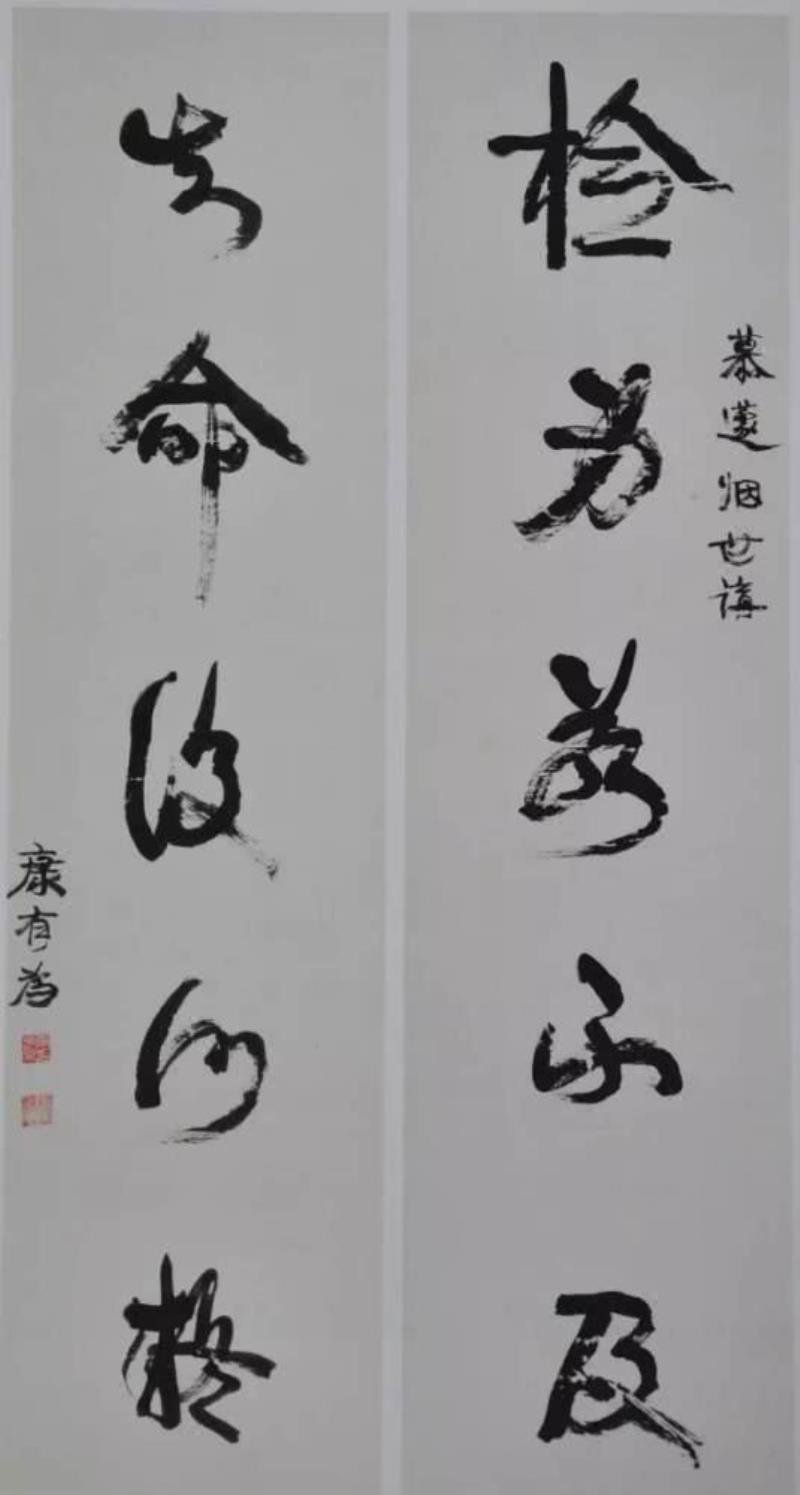 檢身若不及
慕蘧姻世講
知命復何疑
康有為